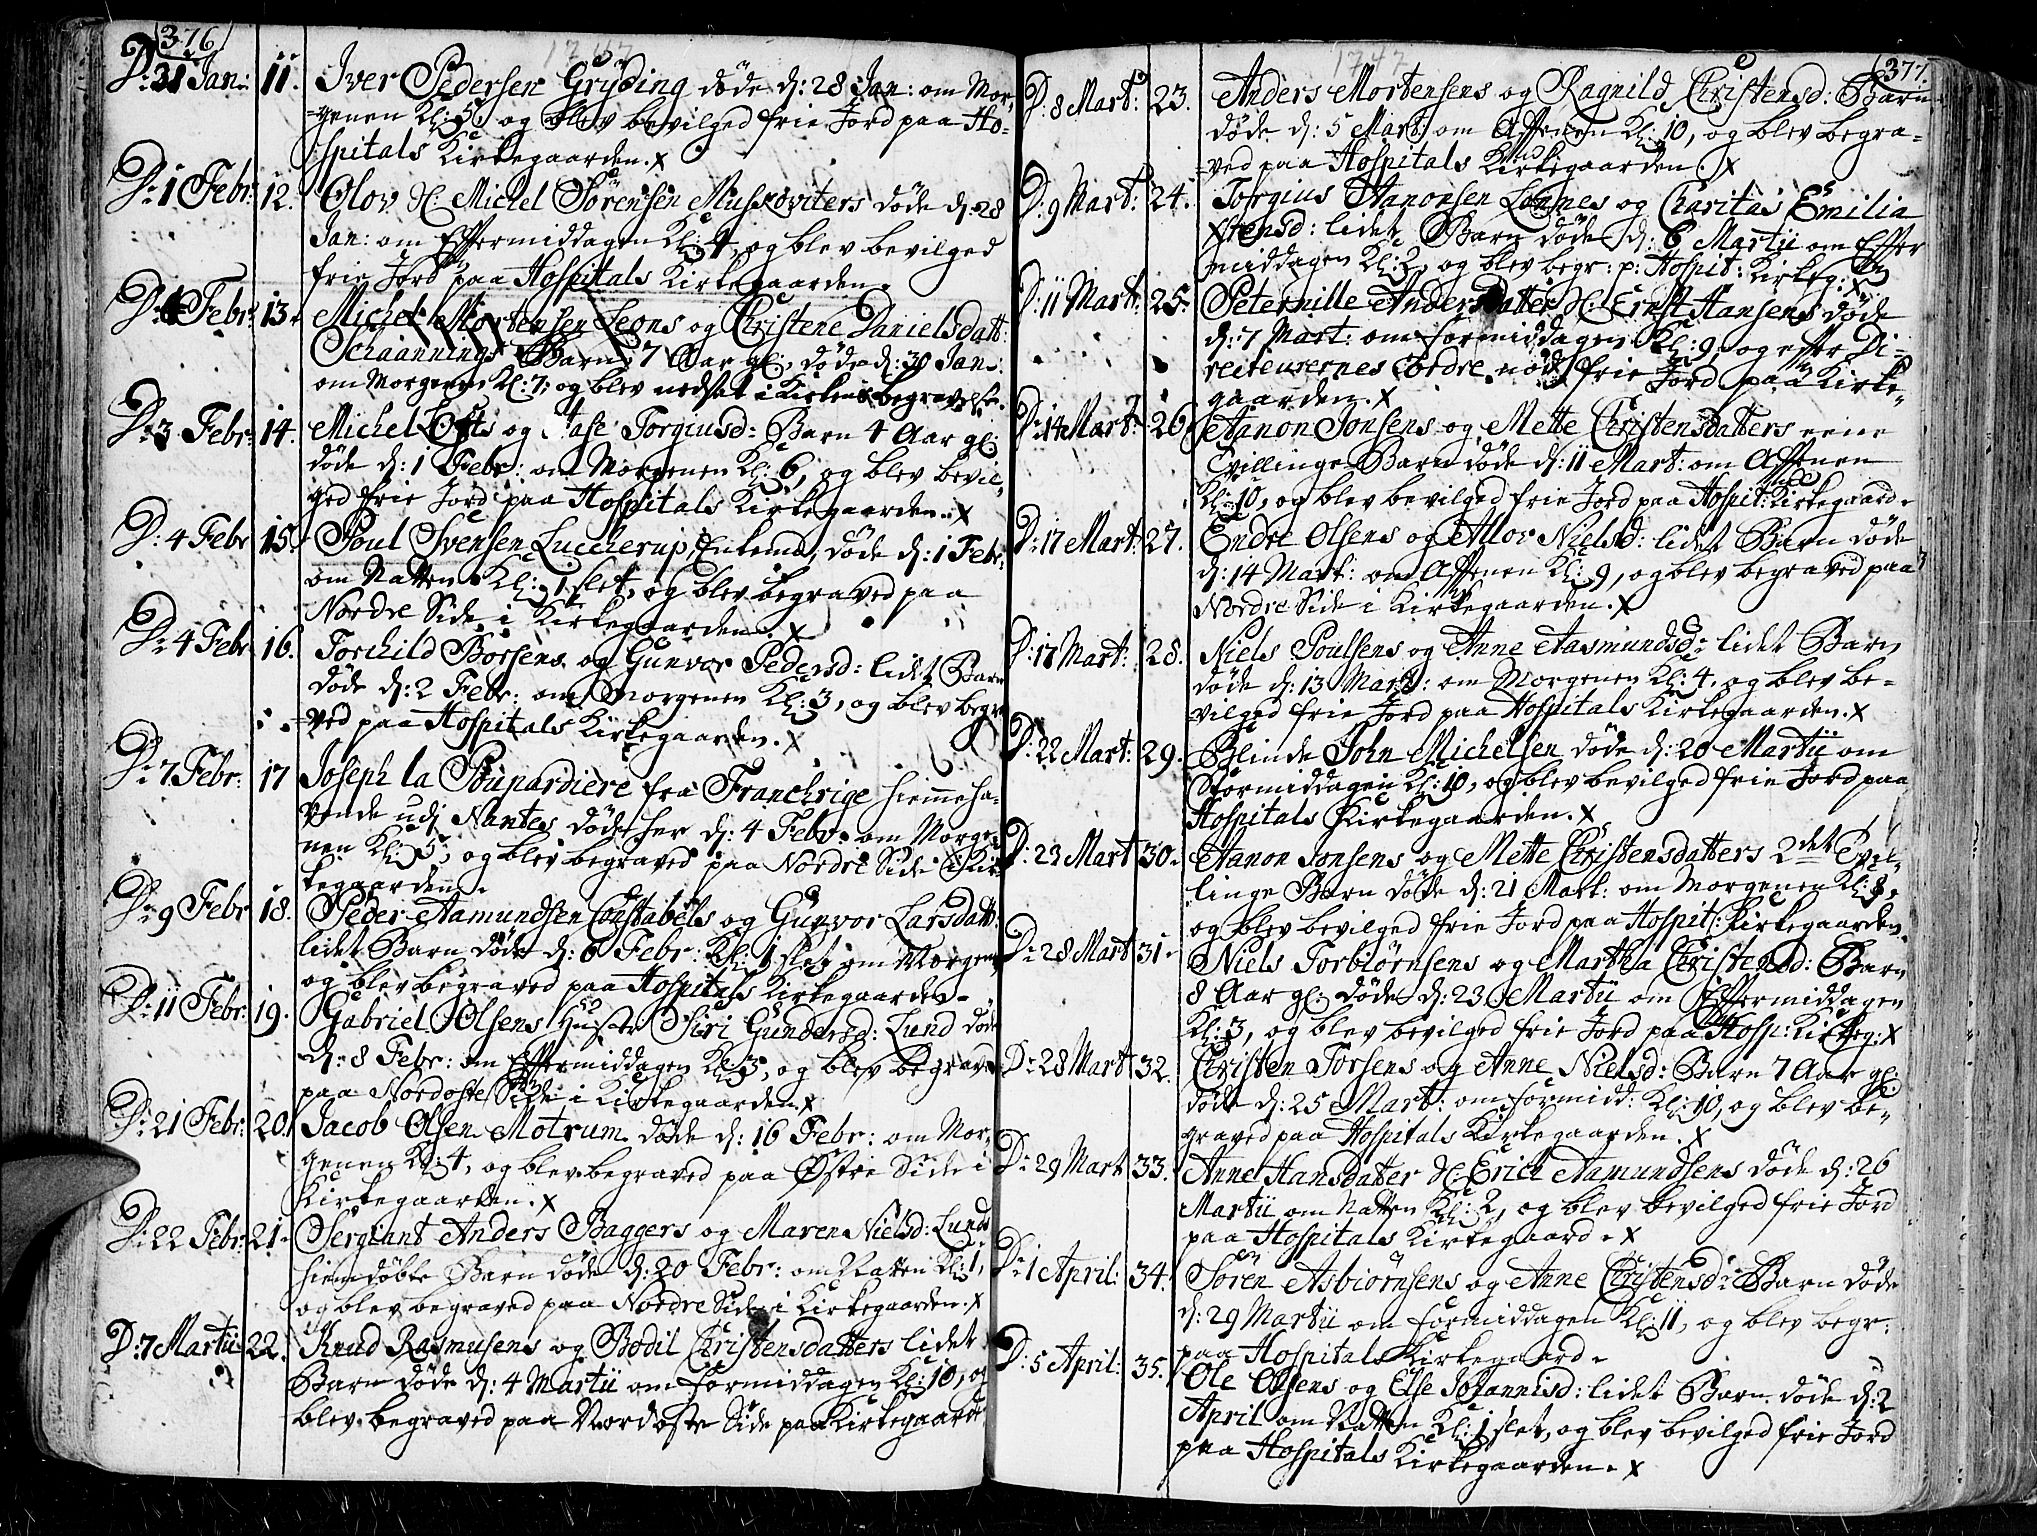 376
1747
D: 31 Jan: 11. Iver Pedersen Gryding døde d: 28 Jan: om Mor-
genen Kl: 5, og blev bevilged frie Jord paa Ho-
spitals Kirkegaarden. X
D: 1 Febr: 12. Olov H: Michel Sörensen Muskoviters døde d: 28
Jan: om Eftermiddagen Kl: 4, og blev bevilged
frie Jord paa Hospitals Kirkegaarden.
D: Febr: 13. Michel Mortensen Leons og Christene Danielsdatt:
Schaannings Barn, 7 Aar gl: døde d: 30 Jan:
om Morgenen Kl: 7, og blev nedsat i Kirkens begravelse.
D: 3 Febr: 14. Michel Lofts og Aase Torgiusd: Barn 4 Aar gl:
døde d: 1 Febr: om Morgenen Kl: 6, og blev bevil-
ged frie Jord paa Hospitals Kirkegaarden. X
D: 4 Febr 15. Poul Svensen Luccherup, Enkemd, døde d: 1 Febr:
om Natten Kl: 1 slet, og blev begraved paa
Nordre Side i Kirkegaarden. X
D: 4 Febr 16. Torchild Börsens og Gunvor Pedersd: lidet Barn
døde d: 2 Febr: om Morgenen Kl: 3, og blev begra-
ved paa Hospitals Kirkegaarden. X
D: 7 Febr: 17 Joseph la Poupardiere fra Franchrige hiemeha-
vende udi Nantes døde her d: 4 Febr: om Morge-
nen Kl: 5, og blev begraved paa Nordre Side i Kir-
kegaarden.
D: 9 Febr 18. Peder Aamundsen Constabels og Gunvor Larsdatt:
lidet Barn døde d: 6 Febr: Kl: 1 slet om Morgenen
og blev begraved paa Hospitals Kirkegaarden.
D: 11 Febr: 19. Gabriel Olsens Hustr Siri Gundersd: Lund døde
d: 8 Febr: om Eftermiddagen Kl: 5, og blev begraved
paa Nordoste Side i Kirkegaarden. X
D: 21 Febr: 20. Jacob Olsen Motrum døde d: 16 Febr: om Mor-
genen Kl: 4, og blev begraved paa Østre Side i
Kirkegaarden. X
D: 22 Febr: 21. Sergiant Anders Baggers og Maren Nielsd: Lunds
hiemdöbte Barn døde d: 20 Febr: om Natten Kl: 1,
og blev begraved paa Nordre Side i Kirkegaarden. X
D: 7 Martii 22. Knud Rasmusens og Bodil Christensdatters lidet
Barn døde d: 4 Martii om Formiddagen Kl: 10, og
blev begraved paa Nordoste Side paa Kirkegaarde
1747
377
D: 8 Mart: 23. Anders Mortensens og Ragnild Christensd: Barn
døde d: 5 Mart: om Aftenen Kl: 10, og blev begra-
ved paa Hospitals Kirkegaarden. X
D: 9 Mart: 24. Torgius Aanonsen Lonnes og Charitas Emilia
Xstensd: lidet Barn døde d: 6 Martii om Efter
middagen Kl: 2, og blev begr: p: Hospit: Kirkeg: X
D: 11 Mart: 25. Peternille Andersdatter H: Ernst Hansens døde
d: 7 Mart: om Formiddagen Kl: 9, og efter Di-
recteurernes Ordre nöd frie Jord paa Kirke-
gaarden. X
D: 14 Mart: 26 Aanon Jonsens og Mette Christensdatters eene
Tvillinge Barn døde d: 11 Mart: om Aftenen
Kl: 10, og blev bevilged frie Jord paa Hospit: Kirkegaard.
D: 17 Mart: 27. Endre Olsens og Allov Nielsd: lidet Barn døde
d: 14 Mart: om Aftenen Kl: 9, og blev begraved paa
Nordre Side i Kirkegaarden. X
D: 17 Mart: 28. Niels Poulsens og Anne Aasmundsd: lidet Barn
døde d: 13 Mart: om Morgenen Kl: 4, og blev be-
vilged frie Jord paa Hospitals Kirkegaarden. X
D: 22 Mart: 29. Blinde John Michelsen døde d: 20 Martii om
Formiddagen Kl: 10, og blev bevilged frie Jord paa
Hospitals Kirkegaarden. X
D: 23 Mart 30. Aanon Jonsens og Mette Christensdatters 2det Tvil-
linge Barn døde d: 21 Mart: om Morgenen Kl: 8,
og blev bevilged frie Jord paa Hospit: Kirkegaarden.
D: 28 Mart 31. Niels Torbiörnsens og Martha Christensd: Barn
8 Aar gl: døde d: 23 Martii om Eftermiddagen
Kl: 3, og blev bevilged frie Jord paa Hosp: Kirkeg: X
D: 28 Mart 32. Christen Torsens og Anne Nielsd: Barn 7 Aar gl:
døde d: 25 Mart: om Formidd: Kl: 10, og blev be-
graved paa Hospitals Kirkegaarden. X
D: 29 Mart 33. Anne Hansdatter H: Erich Aamundsens døde d: 26
Martii om Natten Kl: 2, og blev bevilged frie Jord
paa Hospitals Kirkegaard. X
D: 1 April: 34. Sören Asbiörnsens og Anne Christensd: Barn døde
d: 29 Martii om Formiddagen Kl: 11, og blev begr:
paa Hospitals Kirkegaard.
D: 5 April: 35. Ole Olsens og Else Johannisd: lidet Barn døde d: 2
April om Natten Kl: 1 slet, og blev bevilged frie Jord
paa Hospitals Kirkegaarden. X